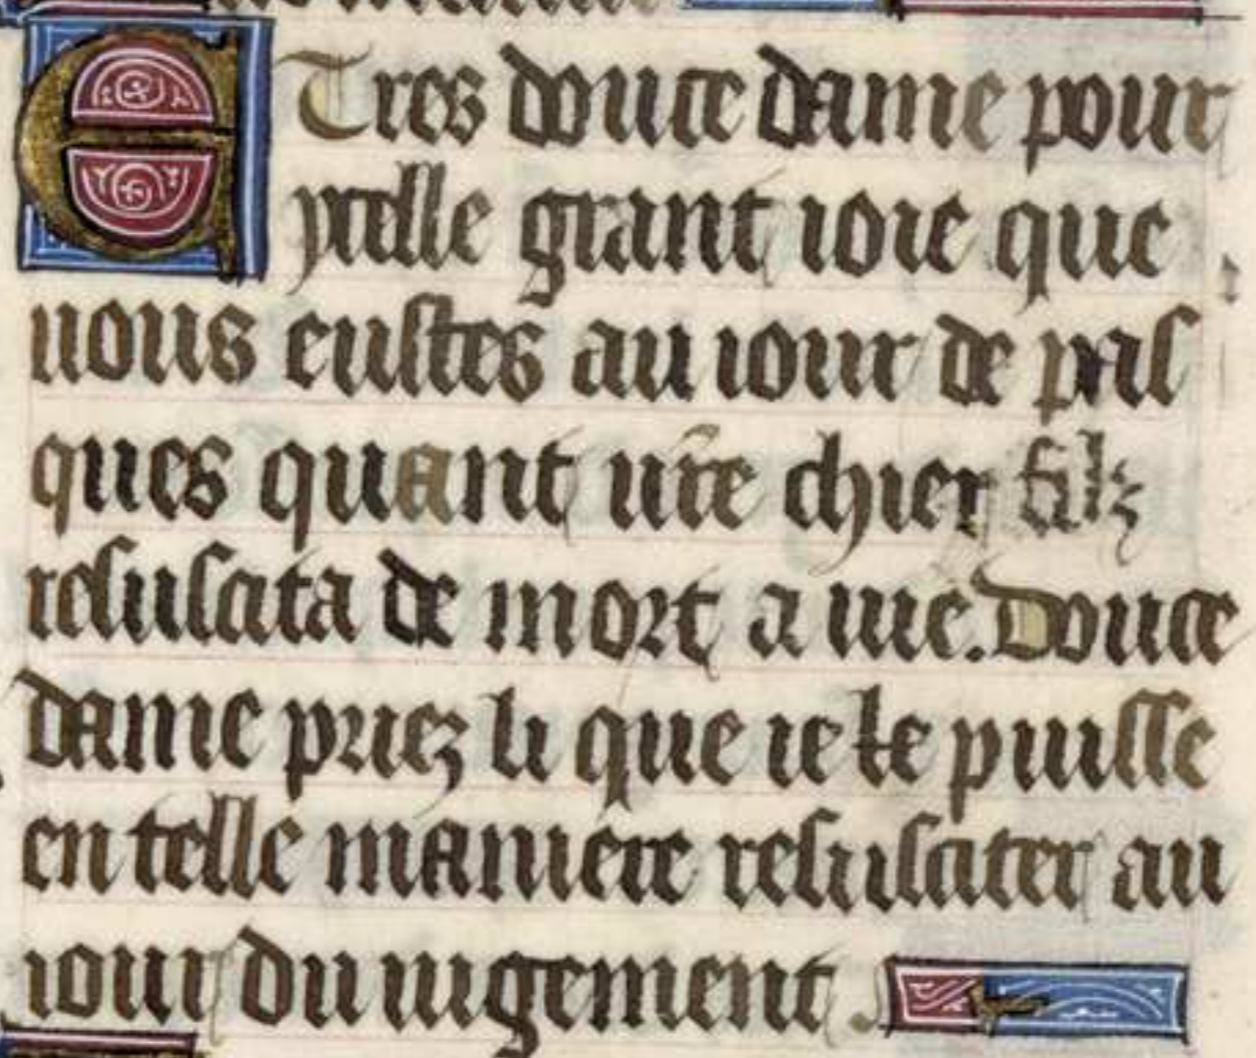 E Tres douce dame pour
ycelle grant ioie que
uous eustes au iour de pas
ques quant ur̃e chier filz
resuscita de mort a uie. Douce
dame priez li que ie le puisse
en telle maniere resusciter au
iour du iugement.